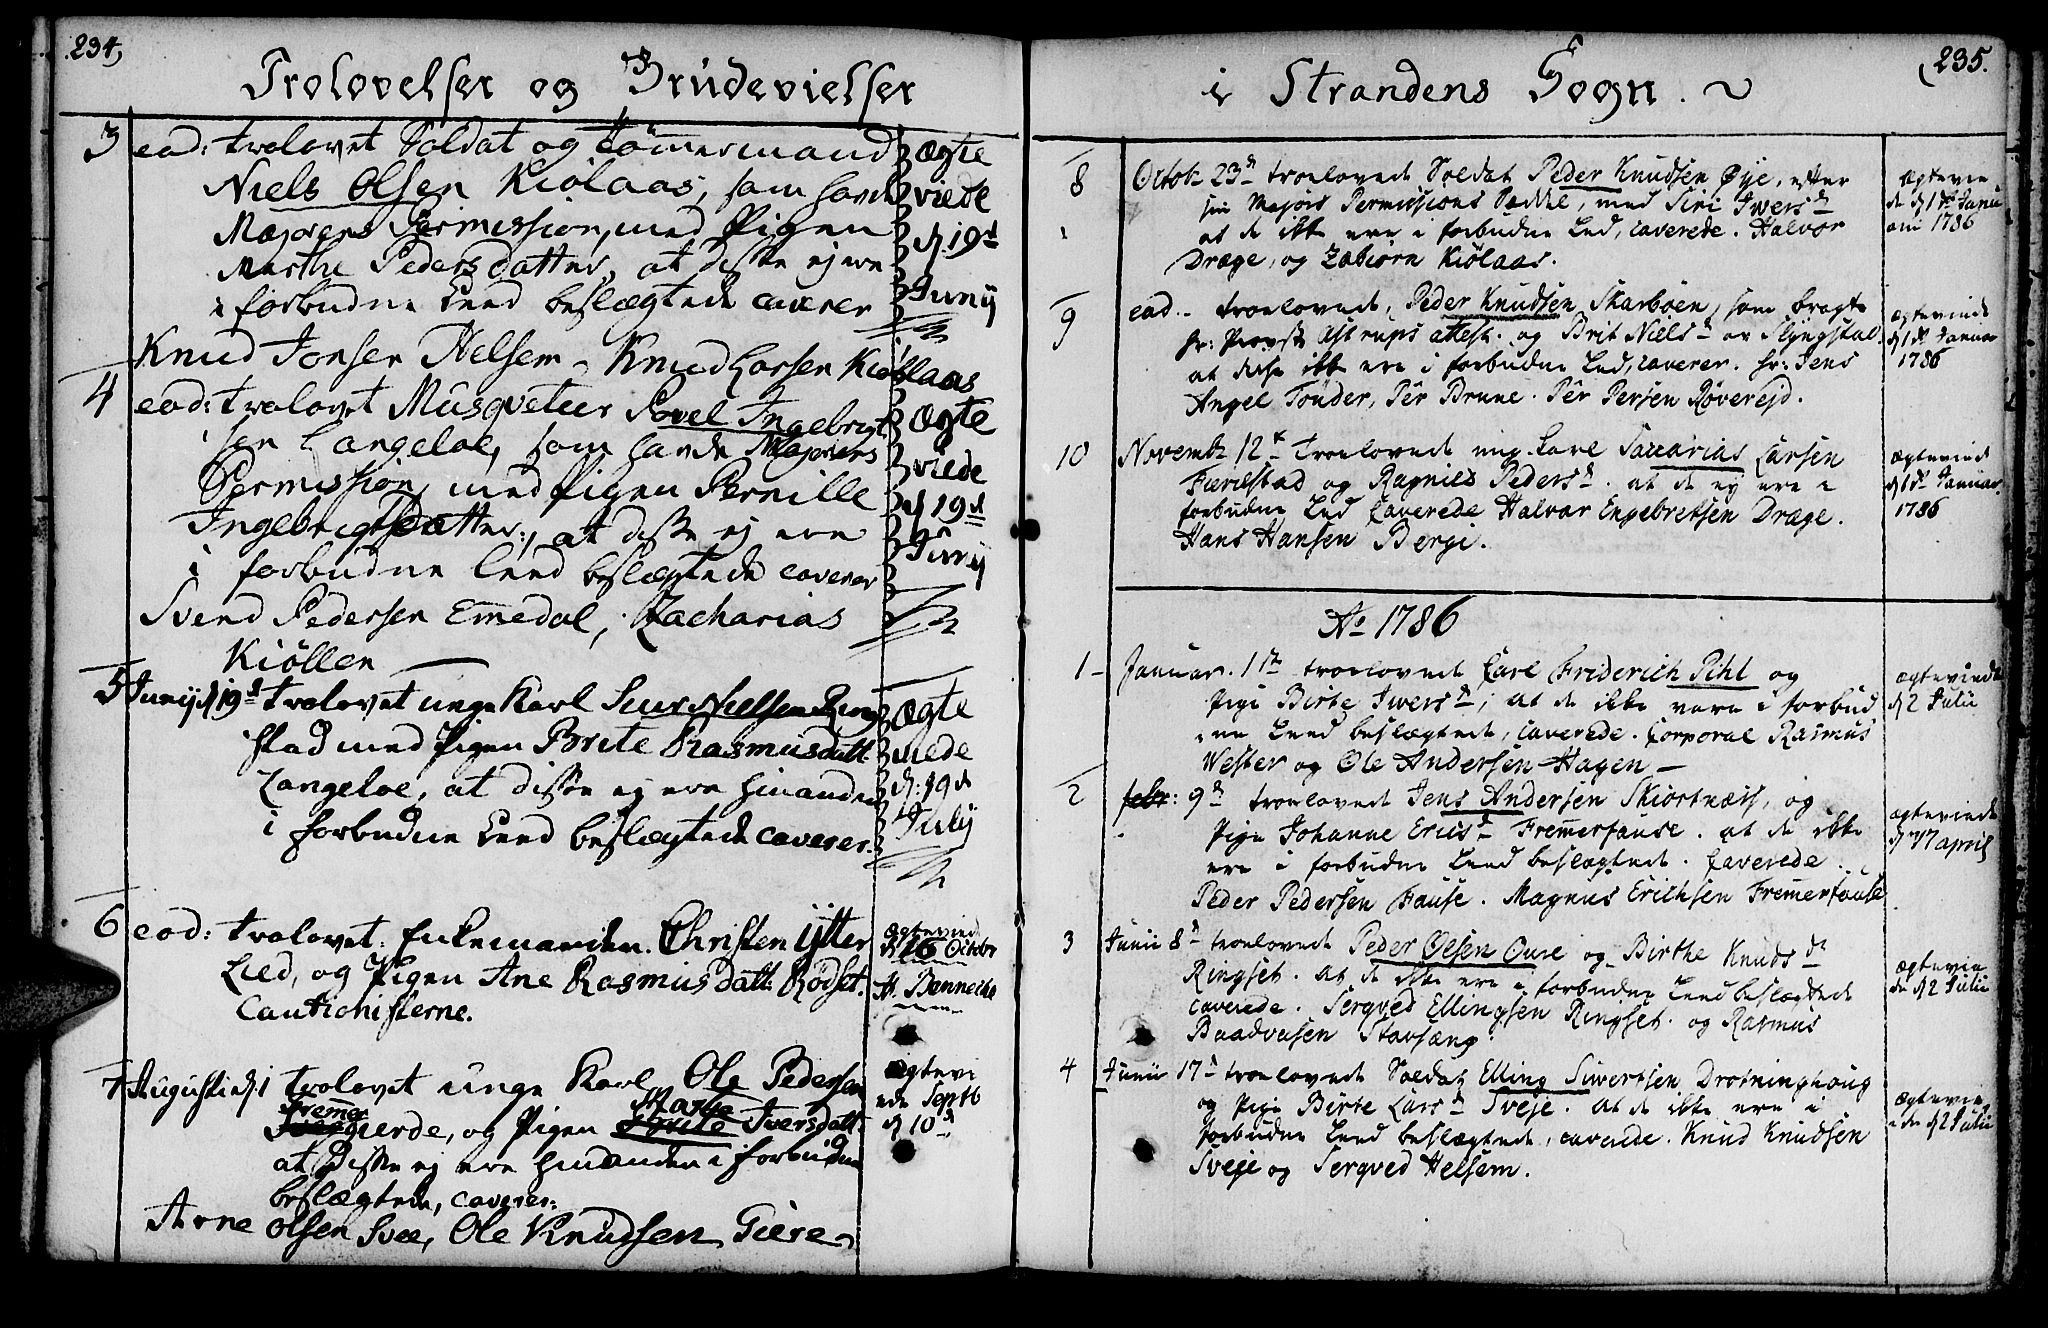 234,
Trolovelser og Brudevielser
3 eod: trolovet Soldat og Tømmermand
Niels Olsen Kiölaas, som havde
Majorens Permission, med Pigen
Marthe Peders datter, at disse ej ere
i forbudne Leed beslægtede caverer
Knud Jonsen Helsem - Knud Larsen Kiöllaas
Ægte
viede
d 19d
Junij
4 eod: trolovet Musqveteer Povel Ingebrigt
sen Langeloe, som havde Majorens
Permission, med Pigen Pernille
Ingebrigtsdatter, at disse ej ere
i forbudne Leed beslægtede caverer
Svend Pedersen Emedal, Zacharias
Kiöllen
Ægte
viede
d 19d
Junij
5 Junij d 19d trolovet unge Karl Siur Nielsen Ring
stad med Pigen Brite Rasmusdatt:
Langeloe, at disse ej ere hinanden
i forbudne Leed beslægtede caverer.
Ægte
viede
d: 19d
Julij
6 eod: trolovet: Enkemanden Christen Ytter
Lied, og Pigen Ane Rasmusdatt: Rödset.
Cautionisterne.
ægteviede
d 16 Octobr
H. Benneche
7 Augusti d 1 trolovet unge Karl Ole Pedersen
Fremer
gierde, og Pigen Brite Iversdatt:
Marte
at disse ej ere hinanden i forbudne
beslægtede, caverer:
Arne Olsen Svee, Ole Knudsen Giere
ægtevi
ede Septb
d 10d
235.
i Strandens Sogn.
8 Octobr 23d troelovede Soldat Peder Knudsen Øye, efter
sin Majors Permissions Seddel, med Siri Iversd
at de ikke ere i forbudne Led, caverede. Halvor
Dræge, og Zabiörn Kiölaas.
ægtevie
de d 1ste Janu
arii 1786
9 eod. troelovede, Peder Knudsen Skarböen, som bragte
hr: Provst Astrups attest. og Brit Nielsd av Slyngstad.
at disse ikke ere i forbudne Led, caverer. hr: Jens
Angel Tönder, Pêr Brune. Pêr Persen Röveresd.
ægteviede
d 1ste Januar
1786
10 Novembr 12te troelovede ung karl Saccarias Larsen
Færilstad og Ragnild Pedersd. at de ej ere i
forbudne Led caverede Halvor Engebretsen Dræge.
Hans Hansen Berge.
ægteviede
d 1ste Januar.
1786
Ao 1786
1 - Januar. 1ste troelovede Carl Friderich Pihl og
Pige Birte Iversd, at de ikke vare i forbud
ne Leed beslægtede, caverede. Corporal Rasmus
Wester og Ole Andersen Hagen
ægteviede
d 2 Julii
2 febr: 9d troelovede Jens Andersen Skiortnæss, og
Pige Johanne Ericsd Fremerhause. at de ikke
ere i forbudne Leed beslægtede. Caverede.
Peder Pedersen Hause. Magnus Erichsen Fremerhause
ægteviede
d 17 april
3 Junii 8d troelovede Peder Olsen Oure og Birthe Knudsd
Ringset. at de ikke ere i forbudne Leed beslægtede
caverede. Sergved Ellingsen Ringset. og Rasmus
Baadvasen Stavsæng.
ægtevie
de d 2 Julii
4 Junii 17d troelovede Soldat Elling Siwertsen Drotninghoug
og Pige Birte Larsd Sveje. at de ikke ere i
forbudne Leed beslægtede, caverede. Knud Knudsen
Sveje og Sergved Helsem.
ægtevie
de d 2 Julii